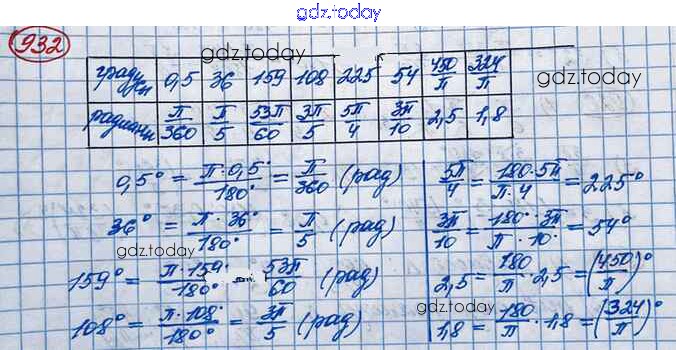 gdz.today
932
gdz.today
градусы 0,5 36 159 108 225 54 450/π 324/π
gdz.today
радианы π/360 π/5 53π/60 3π/5 5π/4 3π/10 2,5 1,8
0,5° = π·0,5°/180° = π/360 (рад)
36° = π·36°/180° = π/5 (рад)
gdz.today
159° = π·159°/180° = 53π/60 (рад)
108° = π·108°/180° = 3π/5 (рад)
5π/4 = 180·5π/π·4 = 225°
3π/10 = 180°·3π/π·10° = 54°
2,5 = 180/π · 2,5 = (450/π)°
gdz.today
1,8 = 180/π · 1,8 = (324/π)°